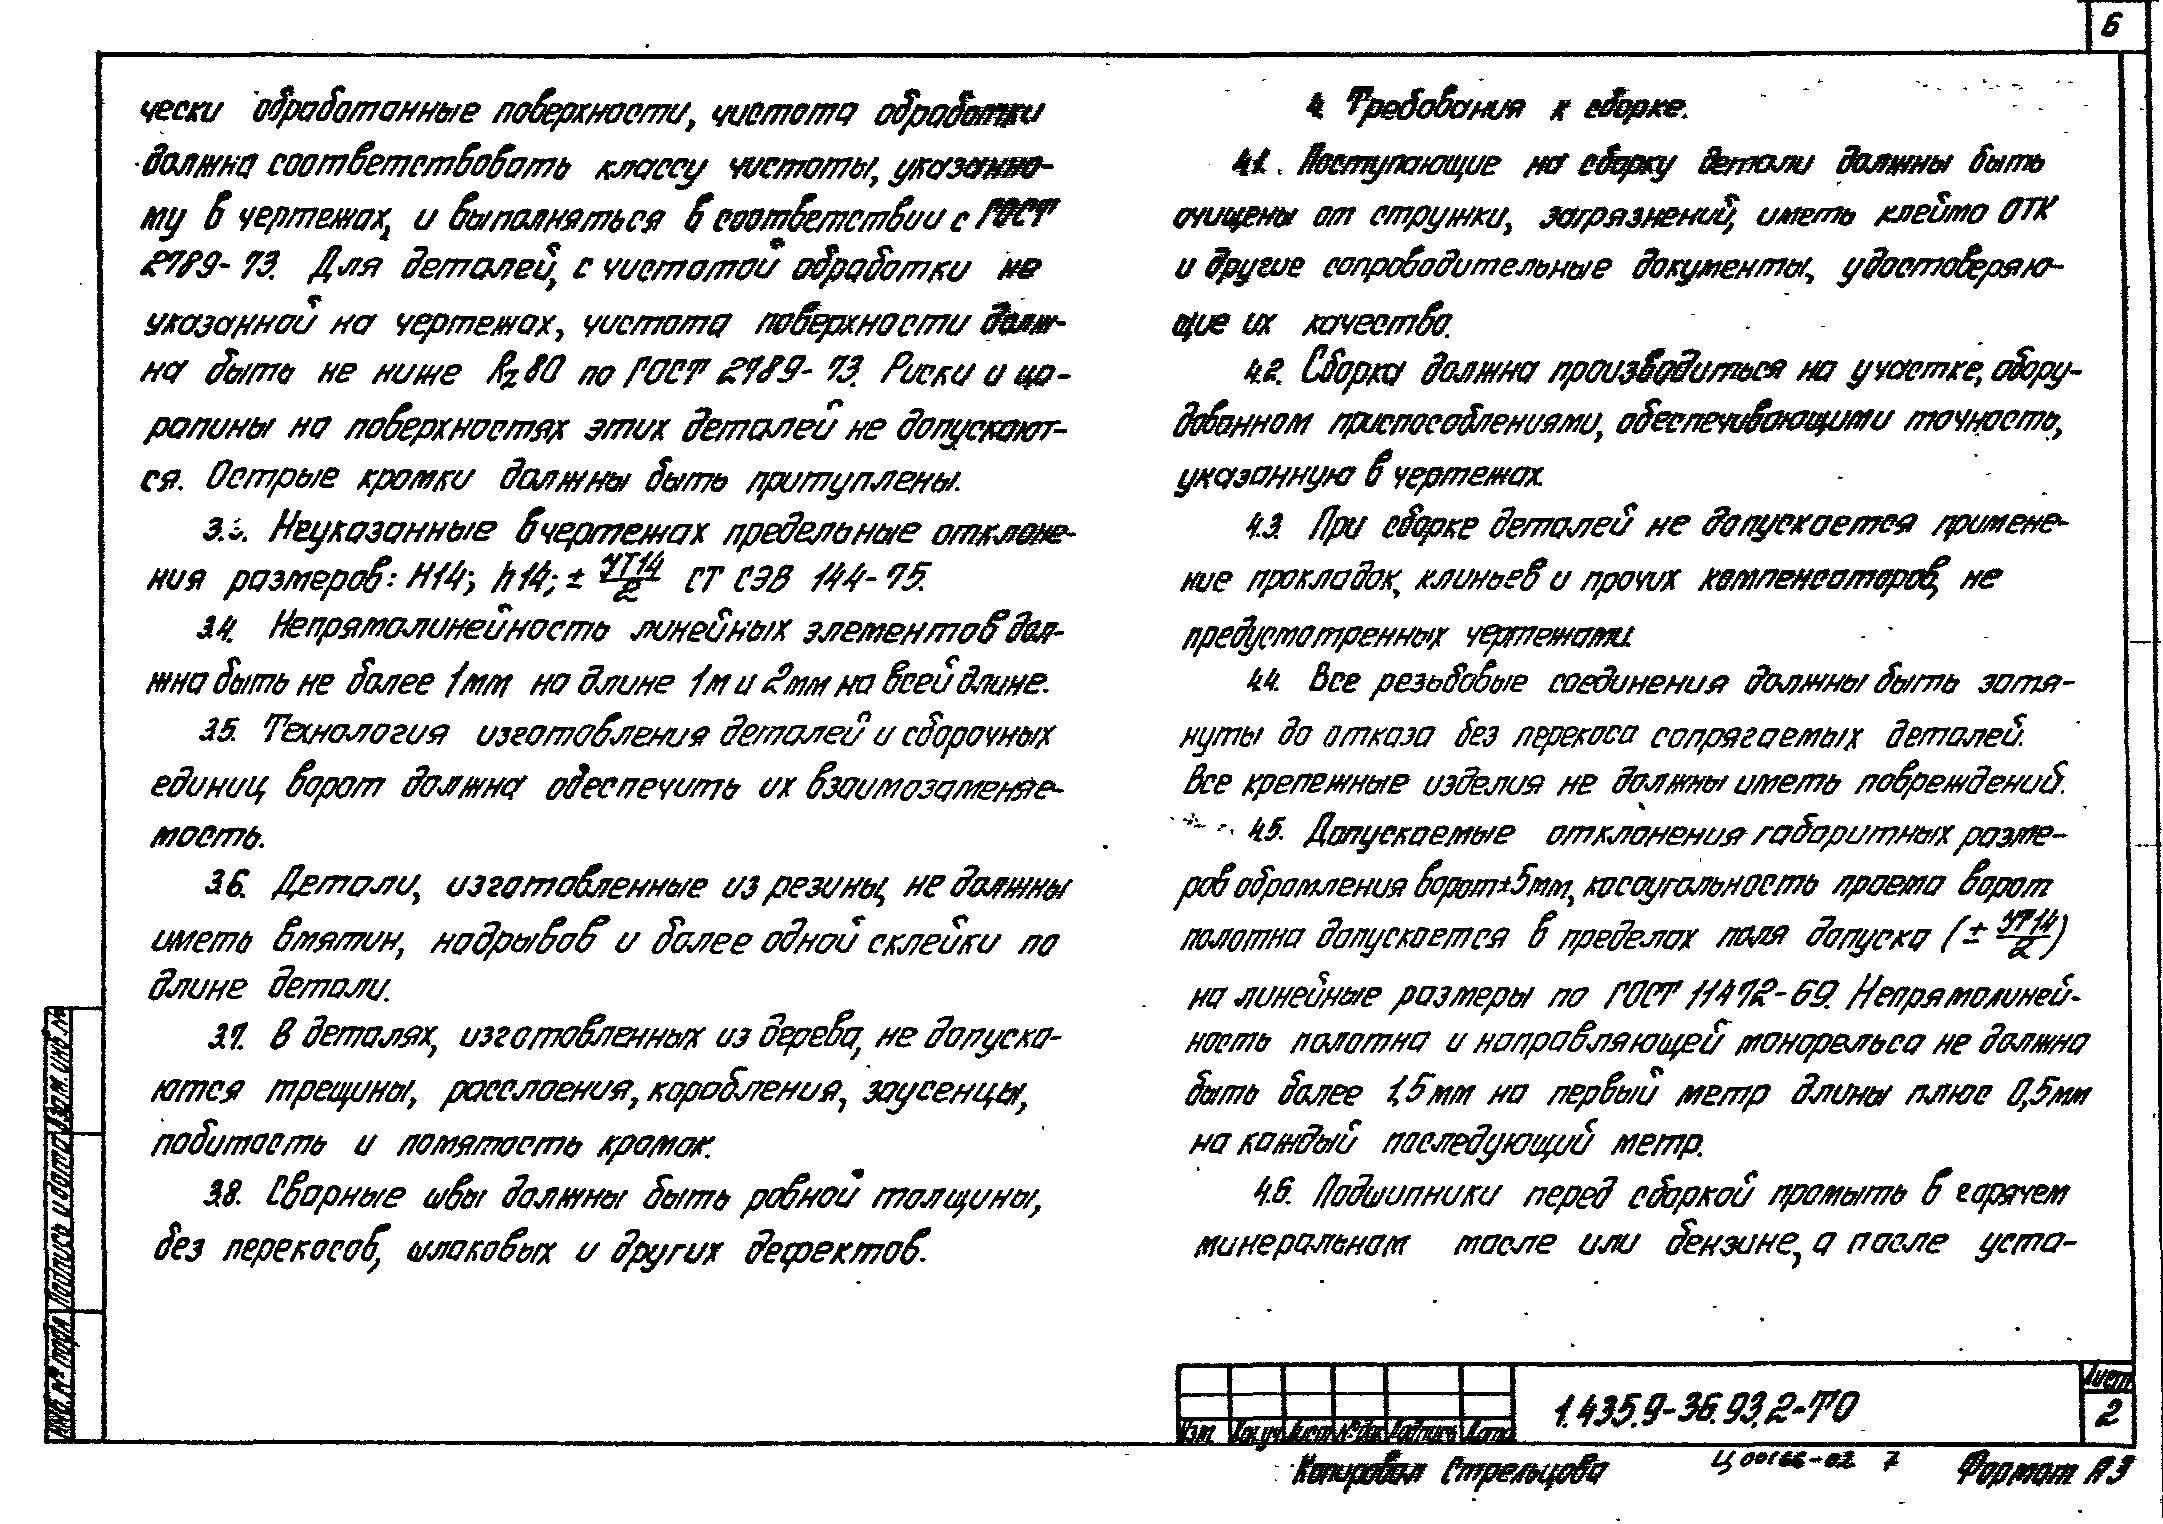 6
чески обработанные поверхности, чистота обработки
должна соответствовать классу чистоты, указанно-
му в чертежах, и выполняться в соответствии с ГОСТ
2789-73. Для деталей, с чистотой обработки не
указанной на чертежах, чистота поверхности долж-
на быть не ниже Rz 80 по ГОСТ 2789-73. Риски и ца-
рапины на поверхностях этих деталей не допускают-
ся. Острые кромки должны быть притуплены.
3.3. Неуказанные в чертежах предельные отклоне-
ния размеров: Н14; h14; ± УТ14/2 СТ СЭВ 144-75.
3.4. Непрямолинейность линейных элементов дол-
жна быть не более 1мм на длине 1м и 2мм на всей длине.
3.5. Технология изготовления деталей и сборочных
единиц ворот должна обеспечить их взаимозаменяе-
мость.
3.6. Детали, изготовленные из резины, не должны
иметь вмятин, надрывов и более одной склейки по
длине детали.
3.7. В деталях, изготовленных из дерева, не допуска-
ются трещины, расслоения, коробления, заусенцы,
побитость и помятость кромок.
3.8. Сварные швы должны быть ровной толщины,
без перекосов, шлаковых и других дефектов.
4. Требования к сборке.
4.1. Поступающие на сборку детали должны быть
очищены от стружки, загрязнений, иметь клеймо ОТК
и другие сопроводительные документы, удостоверяю-
щие их качество.
4.2. Сборка должна производиться на участке, обору-
дованном приспособлениями, обеспечивающими точность,
указанную в чертежах.
4.3. При сборке деталей не допускается примене-
ние прокладок, клиньев и прочих компенсаторов, не
предусмотренных чертежами.
4.4. Все резьбовые соединения должны быть затя-
нуты до отказа без перекоса сопрягаемых деталей.
Все крепежные изделия не должны иметь повреждений.
4.5. Допускаемые отклонения габаритных разме-
ров обрамления ворот ±5мм, косоугольность проема ворот
полотна допускается в пределах поля допуска (± УТ14/2)
на линейные размеры по ГОСТ 11472-69. Непрямолиней-
ность полотна и направляющей монорельса не должна
быть более 1,5мм на первый метр длины плюс 0,5мм
на каждый последующий метр.
4.6. Подшипники перед сборкой промыть в горячем
минеральном масле или бензине, а после уста-
Инв. № подл. Подпись и дата Взам. инв. №
Изм. Кол.уч Лист № док Подпись Дата
1.435.9-36.93.2-ТО
Лист
2
Копировал Стрельцова
Ц00166-02 7
Формат А3